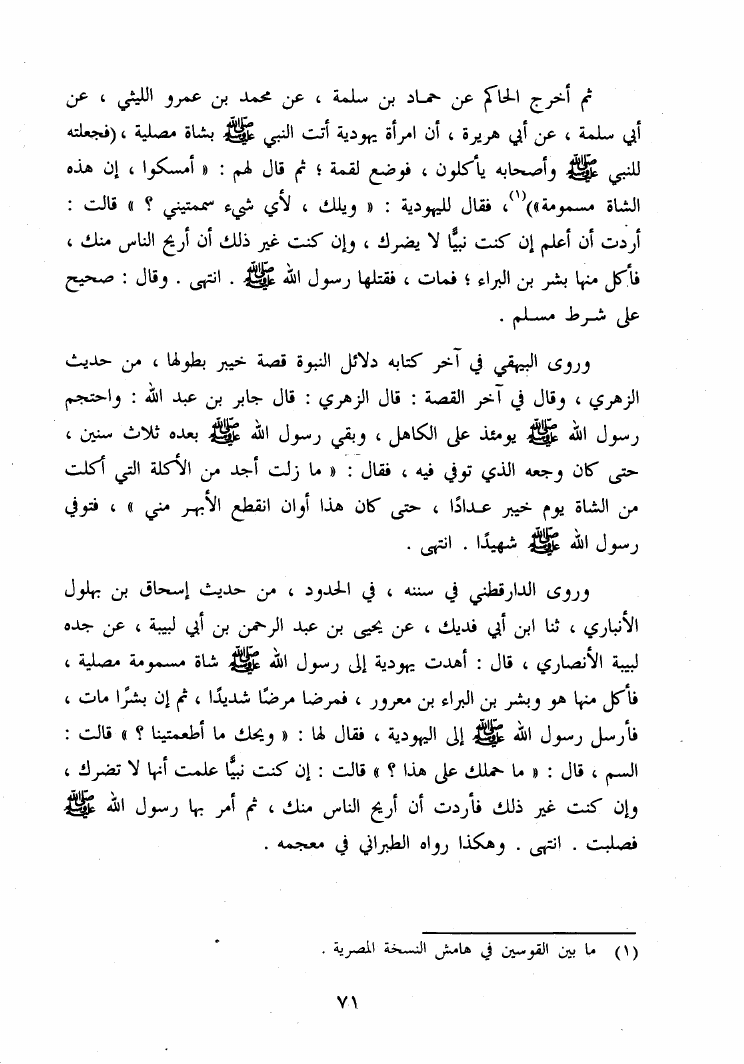 ثم أخرج الحاكم عن حمـاد بن سلمة ، عن محمد بن عمرو الليثي ، عن
أبي سلمة ، عن أبي هريرة ، أن امرأة يهودية أتت النبي ﷺ بشاة مصلية ، (فجعلته
للنبي ﷺ وأصحابه يأكلون ، فوضع لقمة ؛ ثم قال لهم : « أمسكوا ، إن هذه
الشاة مسمومة»)(١)، فقال لليهودية : « ويلك ، لأي شيء سممتيني ؟ » قالت :
أردت أن أعلم إن كنت نبيًّا لا يضرك ، وإن كنت غير ذلك أن أريح الناس منك ،
فأكل منها بشر بن البراء ؛ فمات ، فقتلها رسول الله ﷺ . انتهى . وقال : صحيح
على شـرط مسـلم .
وروى البيهقي في آخر كتابه دلائل النبوة قصة خيبر بطولها ، من حديث
الزهري ، وقال في آخر القصة : قال الزهري : قال جابر بن عبد الله : واحتجم
رسول الله ﷺ يومئذ على الكاهل ، وبقي رسول الله ﷺ بعده ثلاث سنين ،
حتى كان وجعه الذي توفي فيه ، فقال : « ما زلت أجد من الأكلة التي أكلت
من الشاة يوم خيبر عـدادًا ، حتى كان هذا أوان انقطع الأبهـر مني » ، فتوفي
رسول الله ﷺ شهيدًا . انتهى .
وروى الدارقطني في سننه ، في الحدود ، من حديث إسحاق بن بهلول
الأنباري ، ثنا ابن أبي فديك ، عن يحيى بن عبد الرحمن بن أبي لبيبة ، عن جده
لبيبة الأنصاري ، قال : أهدت يهودية إلى رسول الله ﷺ شاة مسمومة مصلية ،
فأكل منها هو وبشر بن البراء بن معرور ، فمرضا مرضًا شديدًا ، ثم إن بشرًا مات ،
فأرسل رسول الله ﷺ إلى اليهودية ، فقال لها : « ويحك ما أطعمتينا ؟ » قالت :
السم ، قال : « ما حملك على هذا ؟ » قالت : إن كنت نبيًّا علمت أنها لا تضرك ،
وإن كنت غير ذلك فأردت أن أريح الناس منك ، ثم أمر بها رسول الله ﷺ
فصلبت . انتهى . وهكذا رواه الطبراني في معجمه .
(١) ما بين القوسين في هامش النسخة المصرية .
٧١